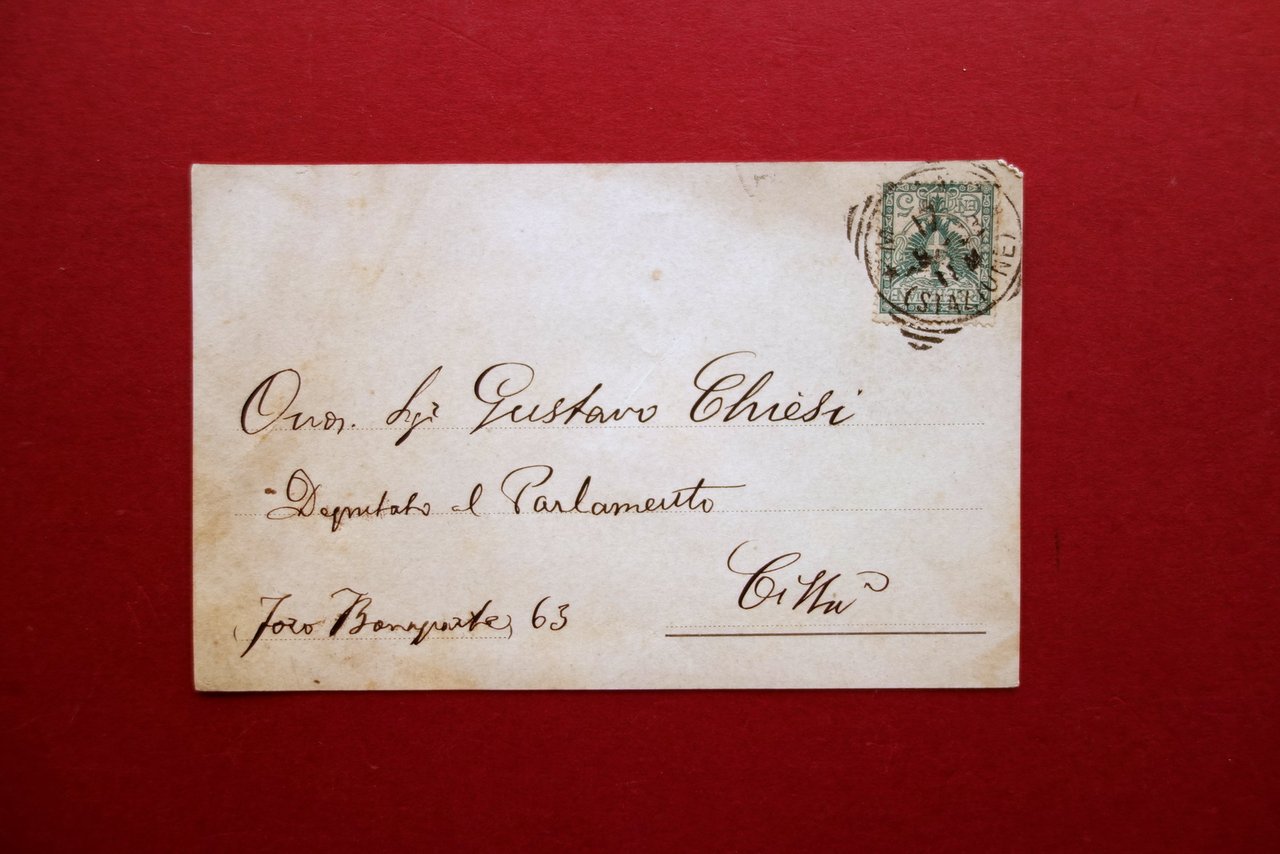 (STAZIONE)
Onor. Sigr Gustavo Chiesi
Deputato al Parlamento
Città
Foro Bonaparte, 63